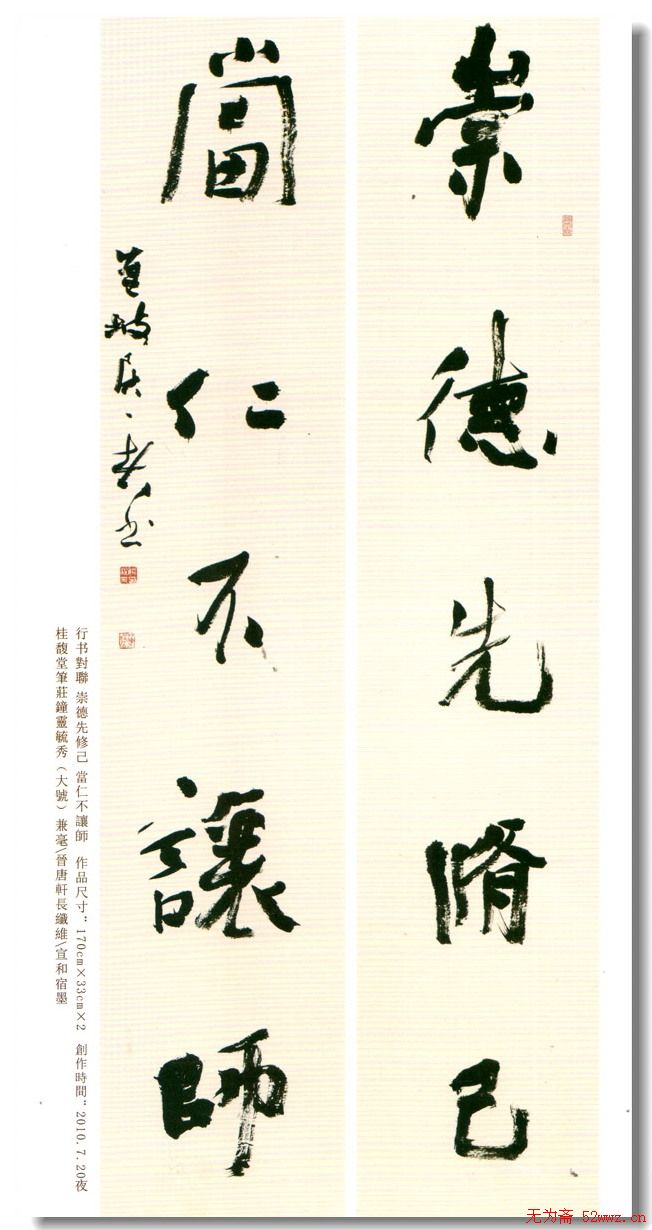 崇德先脩己
當仁不讓師
行书對聯 崇德先修己 當仁不讓師 作品尺寸：170cm×33cm×2 創作時間：2010.7.20夜
桂馥堂筆莊鐘靈毓秀（大號）兼毫\晉唐軒長纖維\宣和宿墨
无为斋 52wwz.cn